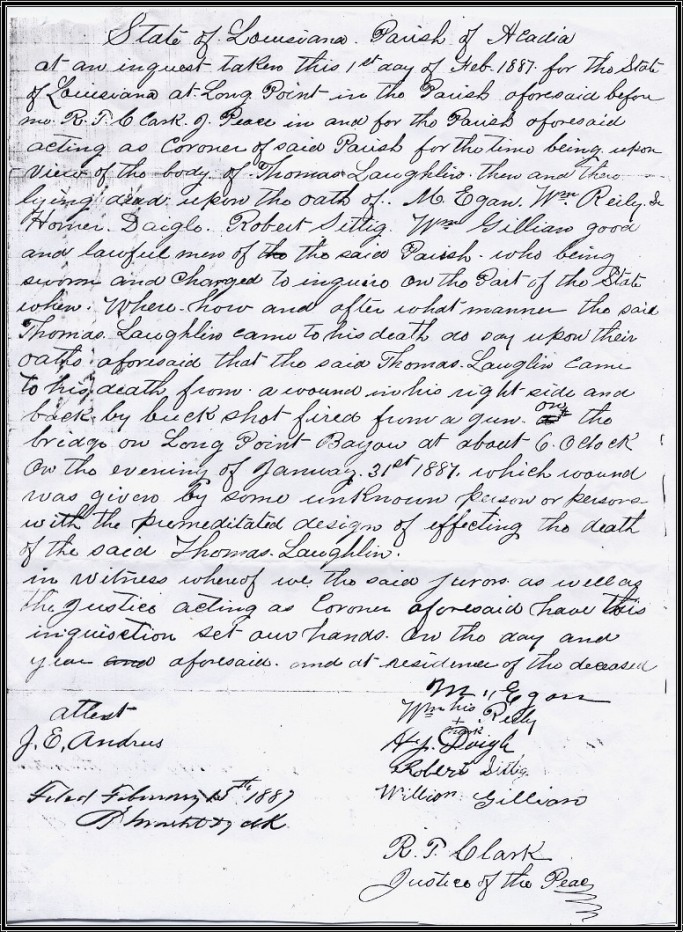 State of Louisiana. Parish of Acadia
at an inquest taken this 1st day of Feb. 1887. for the State
of Louisiana at Long Point in the Parish aforesaid before
me R. T. Clark J. Peace in and for the Parish aforesaid
acting as Coroner of said Parish for the time being upon
view of the body of Thomas Laughlin. then and there
lying dead upon the oath of. M. Egan. Wm Reily. Sr
Homer. Daigle. Robert Sittig. Wm Gillian good
and lawful men of the the said Parish. who being
sworn and charged to inquire on the Part of the State
when. Where. how and after what manner the said
Thomas. Laughlin came to his death do say upon their
oaths aforesaid that the said Thomas. Lauglin came
to his death, from a wound in his right side and
back by buck shot fired from a gun. on the
bridge on Long Point Bayou at about 6. Oclock
On the evening of January. 31st 1887. which wound
was given by some unknown person or persons
with the premeditated design of effecting the death
of the said Thomas. Laughlin.
in witness whereof we the said jurors. as well as
the Justice acting as Coroner aforesaid have this
inquisction set our hands. on the day and
year and aforesaid. and at residence of the deceased
M. Egan
Wm his Reily
+
mark
attest
J. E. Andrus
H. J. Daigle
Robert Sittig.
William Gillian
Filed February 15th 1887
dk.
R. T. Clark
Justice of the Peace